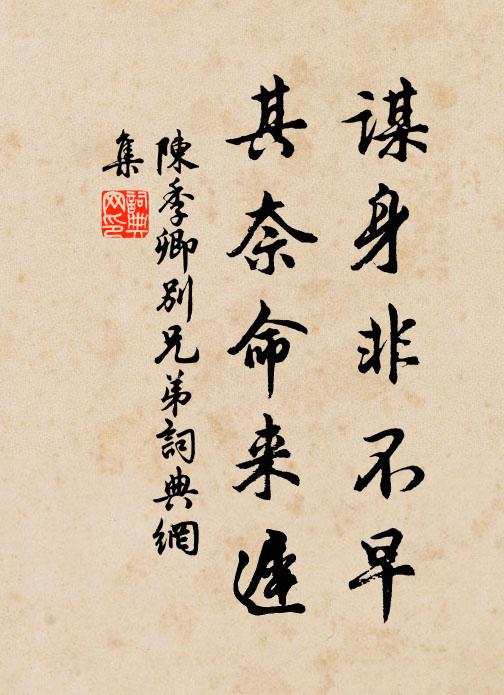 謀身非不早
其奈命来遲
陳季卿別兄弟詞典網
集
詞典
网印